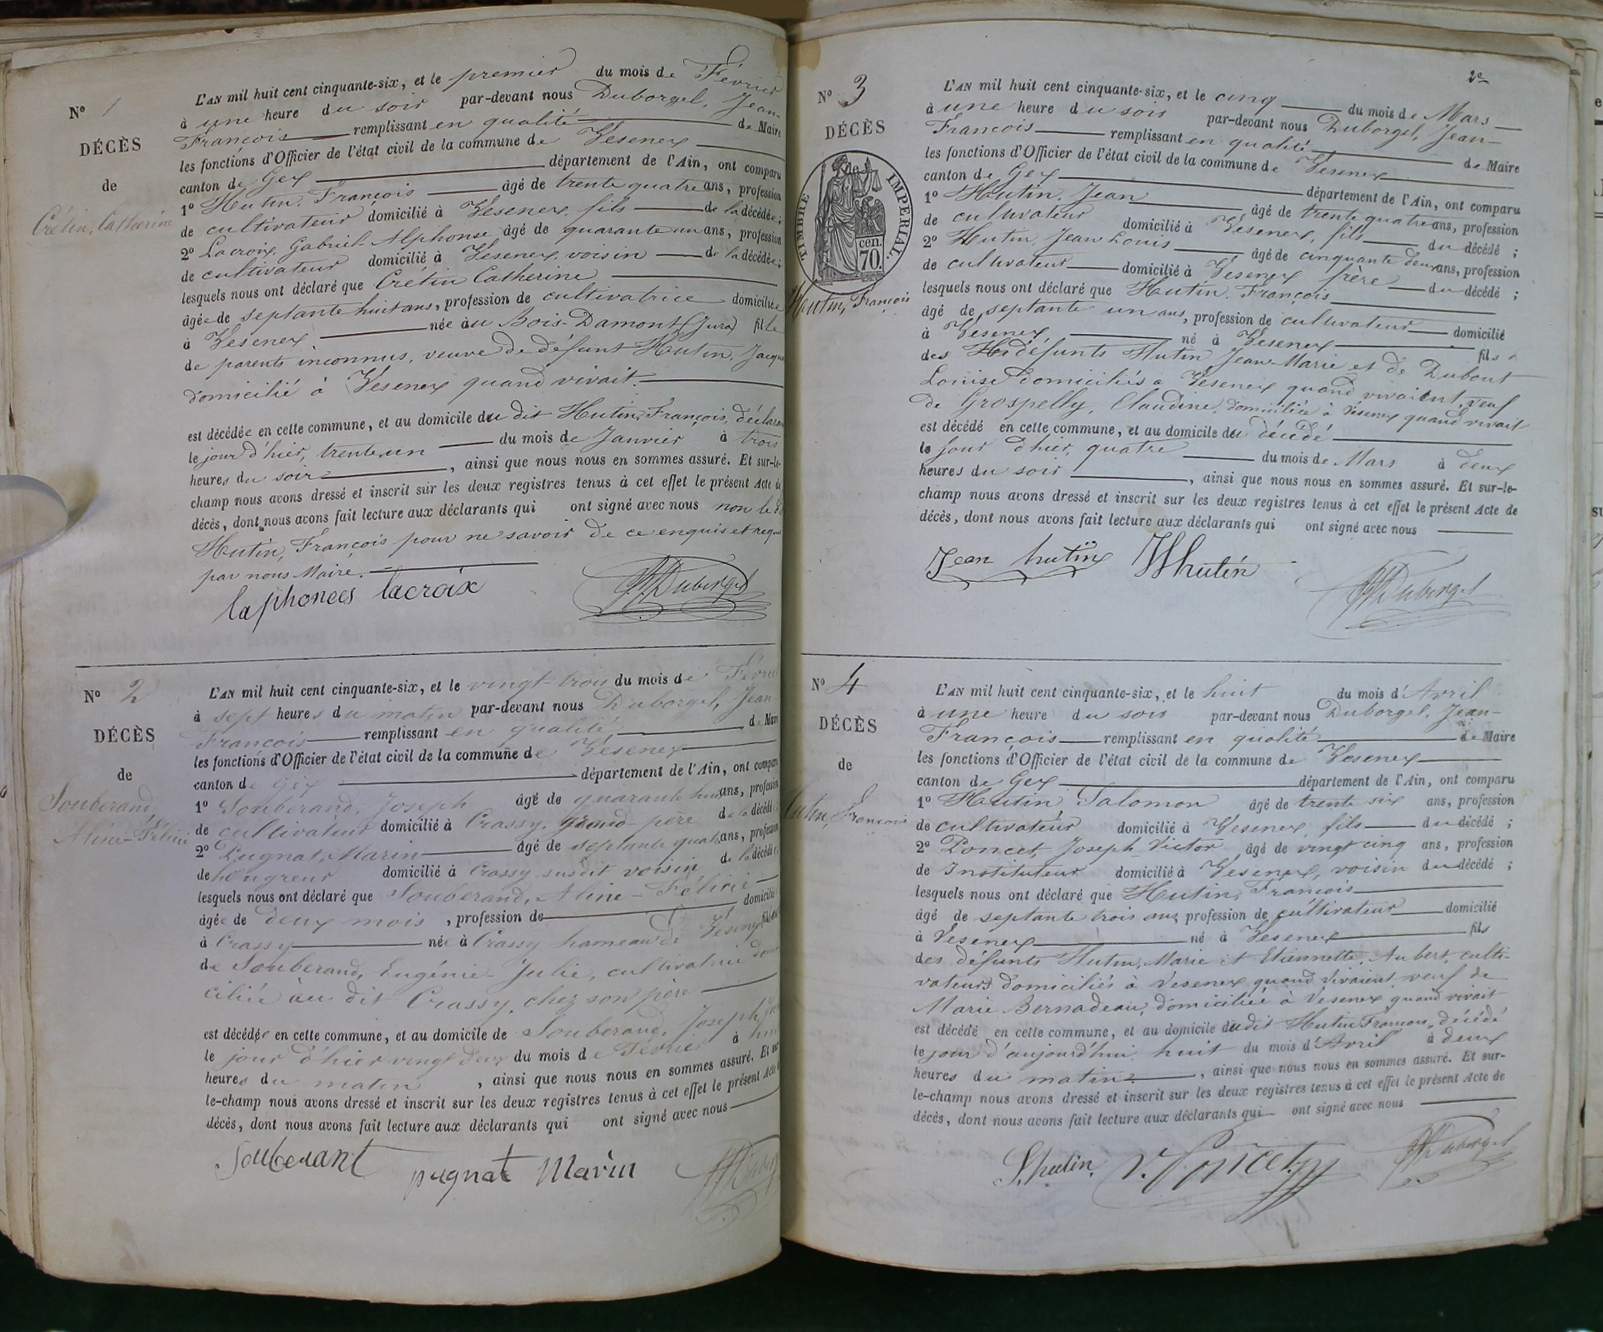 N° 1
DÉCÈS
de
Crétin, Catherine
L'AN mil huit cent cinquante-six, et le premier du mois de Février
à une heure du soir par-devant nous Duborgel, Jean-
François remplissant en qualité de Maire
les fonctions d'Officier de l'état civil de la commune de Vesenex
canton de Gex département de l'Ain, ont comparu
1° Hutin, François âgé de trente quatre ans, profession
de cultivateur domicilié à Vesenex, fils de la décédée;
2° Lacroix, Gabriel Alphonse âgé de quarante un ans, profession
de cultivateur domicilié à Vesenex, voisin de la décédée;
lesquels nous ont déclaré que Crétin Catherine
âgée de septante huit ans, profession de cultivatrice domiciliée
à Vesenex née au Bois-Damont (Jura) fille
de parents inconnus, veuve de défunt Hutin, Jacques
domicilié à Vésenex quand vivait.
est décédée en cette commune, et au domicile du dit Hutin, François, déclarant
le jour d'hier, trente un du mois de Janvier à trois
heures du soir, ainsi que nous nous en sommes assuré. Et sur-le-
champ nous avons dressé et inscrit sur les deux registres tenus à cet effet le présent Acte de
décès, dont nous avons fait lecture aux déclarants qui ont signé avec nous non le dit
Hutin, François pour ne savoir de ce enquis et requis
par nous Maire.
laphonees lacroix JF Duborgel
N° 2
DÉCÈS
de
Souberand,
Aline-Félicie
L'AN mil huit cent cinquante-six, et le vingt-trois du mois de Février
à sept heures du matin par-devant nous Duborgel, Jean
François remplissant en qualité de Maire
les fonctions d'Officier de l'état civil de la commune de Vesenex
canton de Gex département de l'Ain, ont comparu
1° Souberand, Joseph âgé de quarante huit ans, profession
de cultivateur domicilié à Crassy, grand-père de la décédée
2° Pugnat, Marin âgé de septante quatre ans, profession
de domicilié à Crassy susdit voisin de la décédée
lesquels nous ont déclaré que Souberand, Aline-Félicie
âgée de deux mois, profession de domiciliée
à Crassy née à Crassy hameau de Vesenex fille
de Souberand, Eugénie-Julie, cultivatrice domi
ciliée au dit Crassy, chez son père
est décédée en cette commune, et au domicile de Souberand, Joseph
le jour d'hier vingt deux du mois de Février à
heures du matin, ainsi que nous nous en sommes assuré. Et sur
le-champ nous avons dressé et inscrit sur les deux registres tenus à cet effet le présent Acte de
décès, dont nous avons fait lecture aux déclarants qui ont signé avec nous
Souberant pugnat Marin JF Duborgel
2e
N° 3
DÉCÈS
TIMBRE IMPERIAL.
70 cen.
Hutin, François
L'AN mil huit cent cinquante-six, et le cinq du mois de Mars
à une heure du soir par-devant nous Duborgel, Jean-
François remplissant en qualité de Maire
les fonctions d'Officier de l'état civil de la commune de Vesenex
canton de Gex département de l'Ain, ont comparu
1° Hutin, Jean âgé de trente quatre ans, profession
de cultivateur domicilié à Vesenex, fils du décédé;
2° Hutin, Jean Louis âgé de cinquante deux ans, profession
de cultivateur domicilié à Vesenex frère du décédé;
lesquels nous ont déclaré que Hutin, François
âgé de septante un ans, profession de cultivateur domicilié
à Vesenex, né à Vesenex fils
des défunts Hutin Jean-Marie et de Dubout
Louise domiciliés à Vésenex quand vivaient, veuf
de Grospelly, Claudine, domiciliée à Vesenex quand vivait
est décédé en cette commune, et au domicile du décédé
le jour d'hier, quatre du mois de Mars à deux
heures du soir, ainsi que nous nous en sommes assuré. Et sur-le-
champ nous avons dressé et inscrit sur les deux registres tenus à cet effet le présent Acte de
décès, dont nous avons fait lecture aux déclarants qui ont signé avec nous
Jean hutin JL hutin JF Duborgel
N° 4
DÉCÈS
de
Hutin, François
L'AN mil huit cent cinquante-six, et le huit du mois d'Avril
à une heure du soir par-devant nous Duborgel, Jean-
François remplissant en qualité de Maire
les fonctions d'Officier de l'état civil de la commune de Vesenex
canton de Gex département de l'Ain, ont comparu
1° Hutin Salomon âgé de trente six ans, profession
de cultivateur domicilié à Vesenex, fils du décédé;
2° Poncet, Joseph-Victor âgé de vingt cinq ans, profession
de Instituteur domicilié à Vesenex, voisin du décédé;
lesquels nous ont déclaré que Hutin, François
âgé de septante trois ans, profession de cultivateur domicilié
à Vesenex né à Vesenex fils
des défunts Hutin, Marie et Etiennette Aubert, culti-
vateurs domiciliés à Vesenex quand vivaient, veuf de
Marie Bernadeau, domiciliée à Vesenex quand vivait
est décédé en cette commune, et au domicile du dit Hutin François, décédé
le jour d'aujourd'hui, huit du mois d'Avril à deux
heures du matin, ainsi que nous nous en sommes assuré. Et sur-
le-champ nous avons dressé et inscrit sur les deux registres tenus à cet effet le présent Acte de
décès, dont nous avons fait lecture aux déclarants qui ont signé avec nous
S. hutin. V. Poncet JF Duborgel